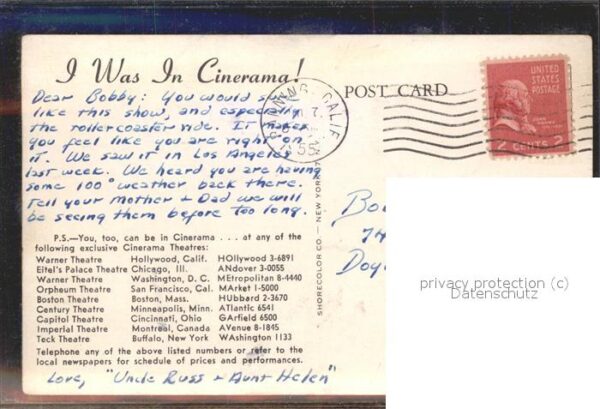 I Was In Cinerama!
POST CARD
UNITED
STATES
POSTAGE
2 CENTS 2
CALIF.
Dear Bobby: You would
like this show, and especially
the roller coaster ride. It makes
you feel like you are right on
it. We saw it in Los Angeles
last week. We heard you are having
some 100° weather back there.
Tell your mother + Dad we will
be seeing them before too long.
P.S.—You, too, can be in Cinerama . . . at any of the
following exclusive Cinerama Theatres:
Warner Theatre Hollywood, Calif. HOllywood 3-6891
Eitel's Palace Theatre Chicago, Ill. ANdover 3-0055
Warner Theatre Washington, D. C. MEtropolitan 8-4440
Orpheum Theatre San Francisco, Cal. MArket 1-5000
Boston Theatre Boston, Mass. HUbbard 2-3670
Century Theatre Minneapolis, Minn. ATlantic 6541
Capitol Theatre Cincinnati, Ohio GArfield 6500
Imperial Theatre Montreal, Canada AVenue 8-1845
Teck Theatre Buffalo, New York WAshington 1133
Telephone any of the above listed numbers or refer to the
local newspapers for schedule of prices and performances.
Love, "Uncle Russ + Aunt Helen"
SHORECOLOR CO.— NEW YORK
Bo
Doy
privacy protection (c)
Datenschutz